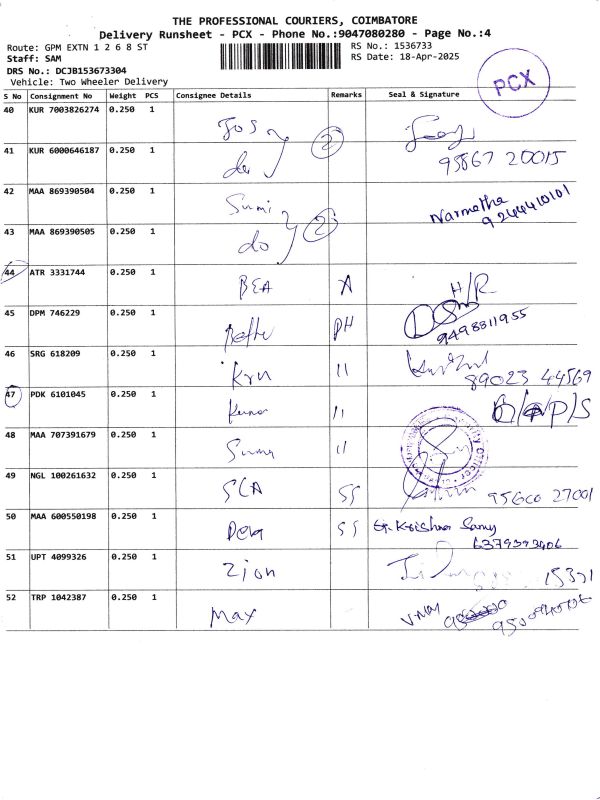 THE PROFESSIONAL COURIERS, COIMBATORE
Delivery Runsheet - PCX - Phone No.:9047080280 - Page No.:4
Route: GPM EXTN 1 2 6 8 ST
RS No.: 1536733
Staff: SAM
RS Date: 18-Apr-2025
DRS No.: DCJB153673304
Vehicle: Two Wheeler Delivery
PCX
S No Consignment No Weight PCS Consignee Details Remarks Seal & Signature
40 KUR 7003826274 0.250 1 2
41 KUR 6000646187 0.250 1 do 95867 20015
42 MAA 869390504 0.250 1 Sumi 2 Narmatha
9244410101
43 MAA 869390505 0.250 1 do
44 ATR 3331744 0.250 1 BEA A H/R
45 DPM 746229 0.250 1 PH 9498311955
46 SRG 618209 0.250 1 11 89023 44569
47 PDK 6101045 0.250 1 11 P/S
48 MAA 707391679 0.250 1 11
49 NGL 100261632 0.250 1 SCA SS 27001
50 MAA 600550198 0.250 1 SS Krishna Samy
6379393406
51 UPT 4099326 0.250 1 Zion
52 TRP 1042387 0.250 1 Max